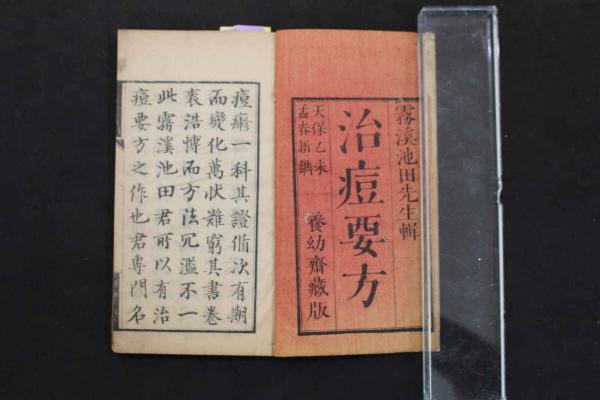 霧溪池田先生輯
治痘要方
天保乙未
孟春新鐫
養幼齋藏版
痘瘵一科其證備次有期
而變化萬狀難窮其書卷
裘浩博而方法冗濫不一
此霧溪池田君所以有治
痘要方之作也君專門名